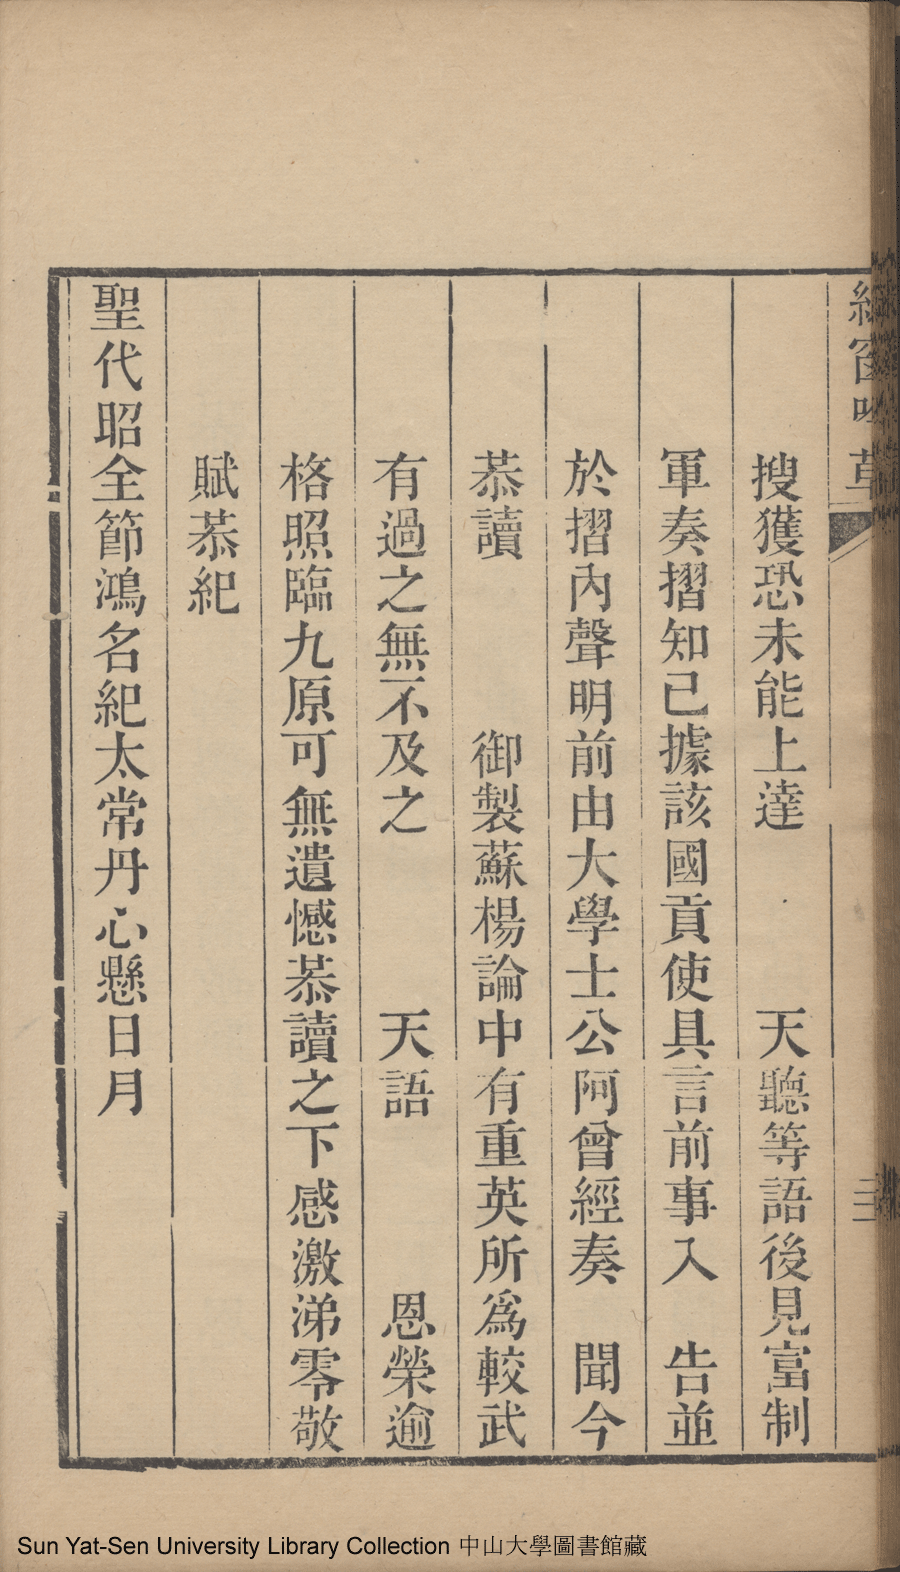 草
三
搜獲恐未能上達　天聽等語後見富制
軍奏摺知已據該國貢使具言前事入　告並
於摺內聲明前由大學士公阿曾經奏　聞今
恭讀　御製蘇楊論中有重英所為較武
有過之無不及之　天語　恩榮逾
格照臨九原可無遺憾恭讀之下感激涕零敬
賦恭紀
聖代昭全節鴻名紀太常丹心懸日月
Sun Yat-Sen University Library Collection 中山大學圖書館藏